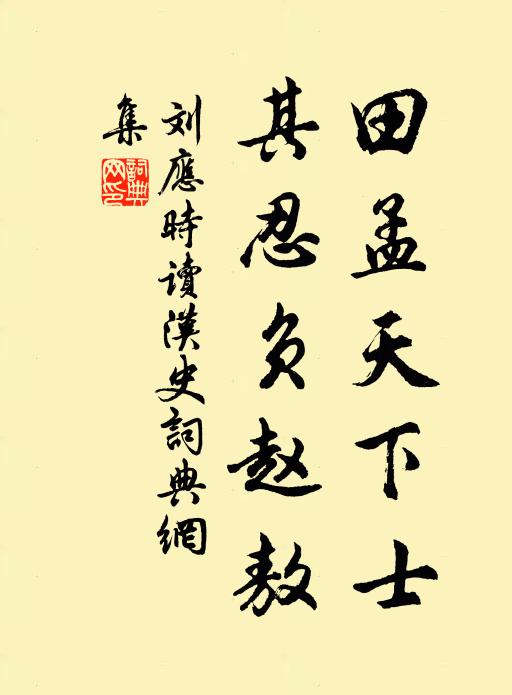 田孟天下士
其忍负赵敖
刘應時读漢史詞典網
集
詞典網印